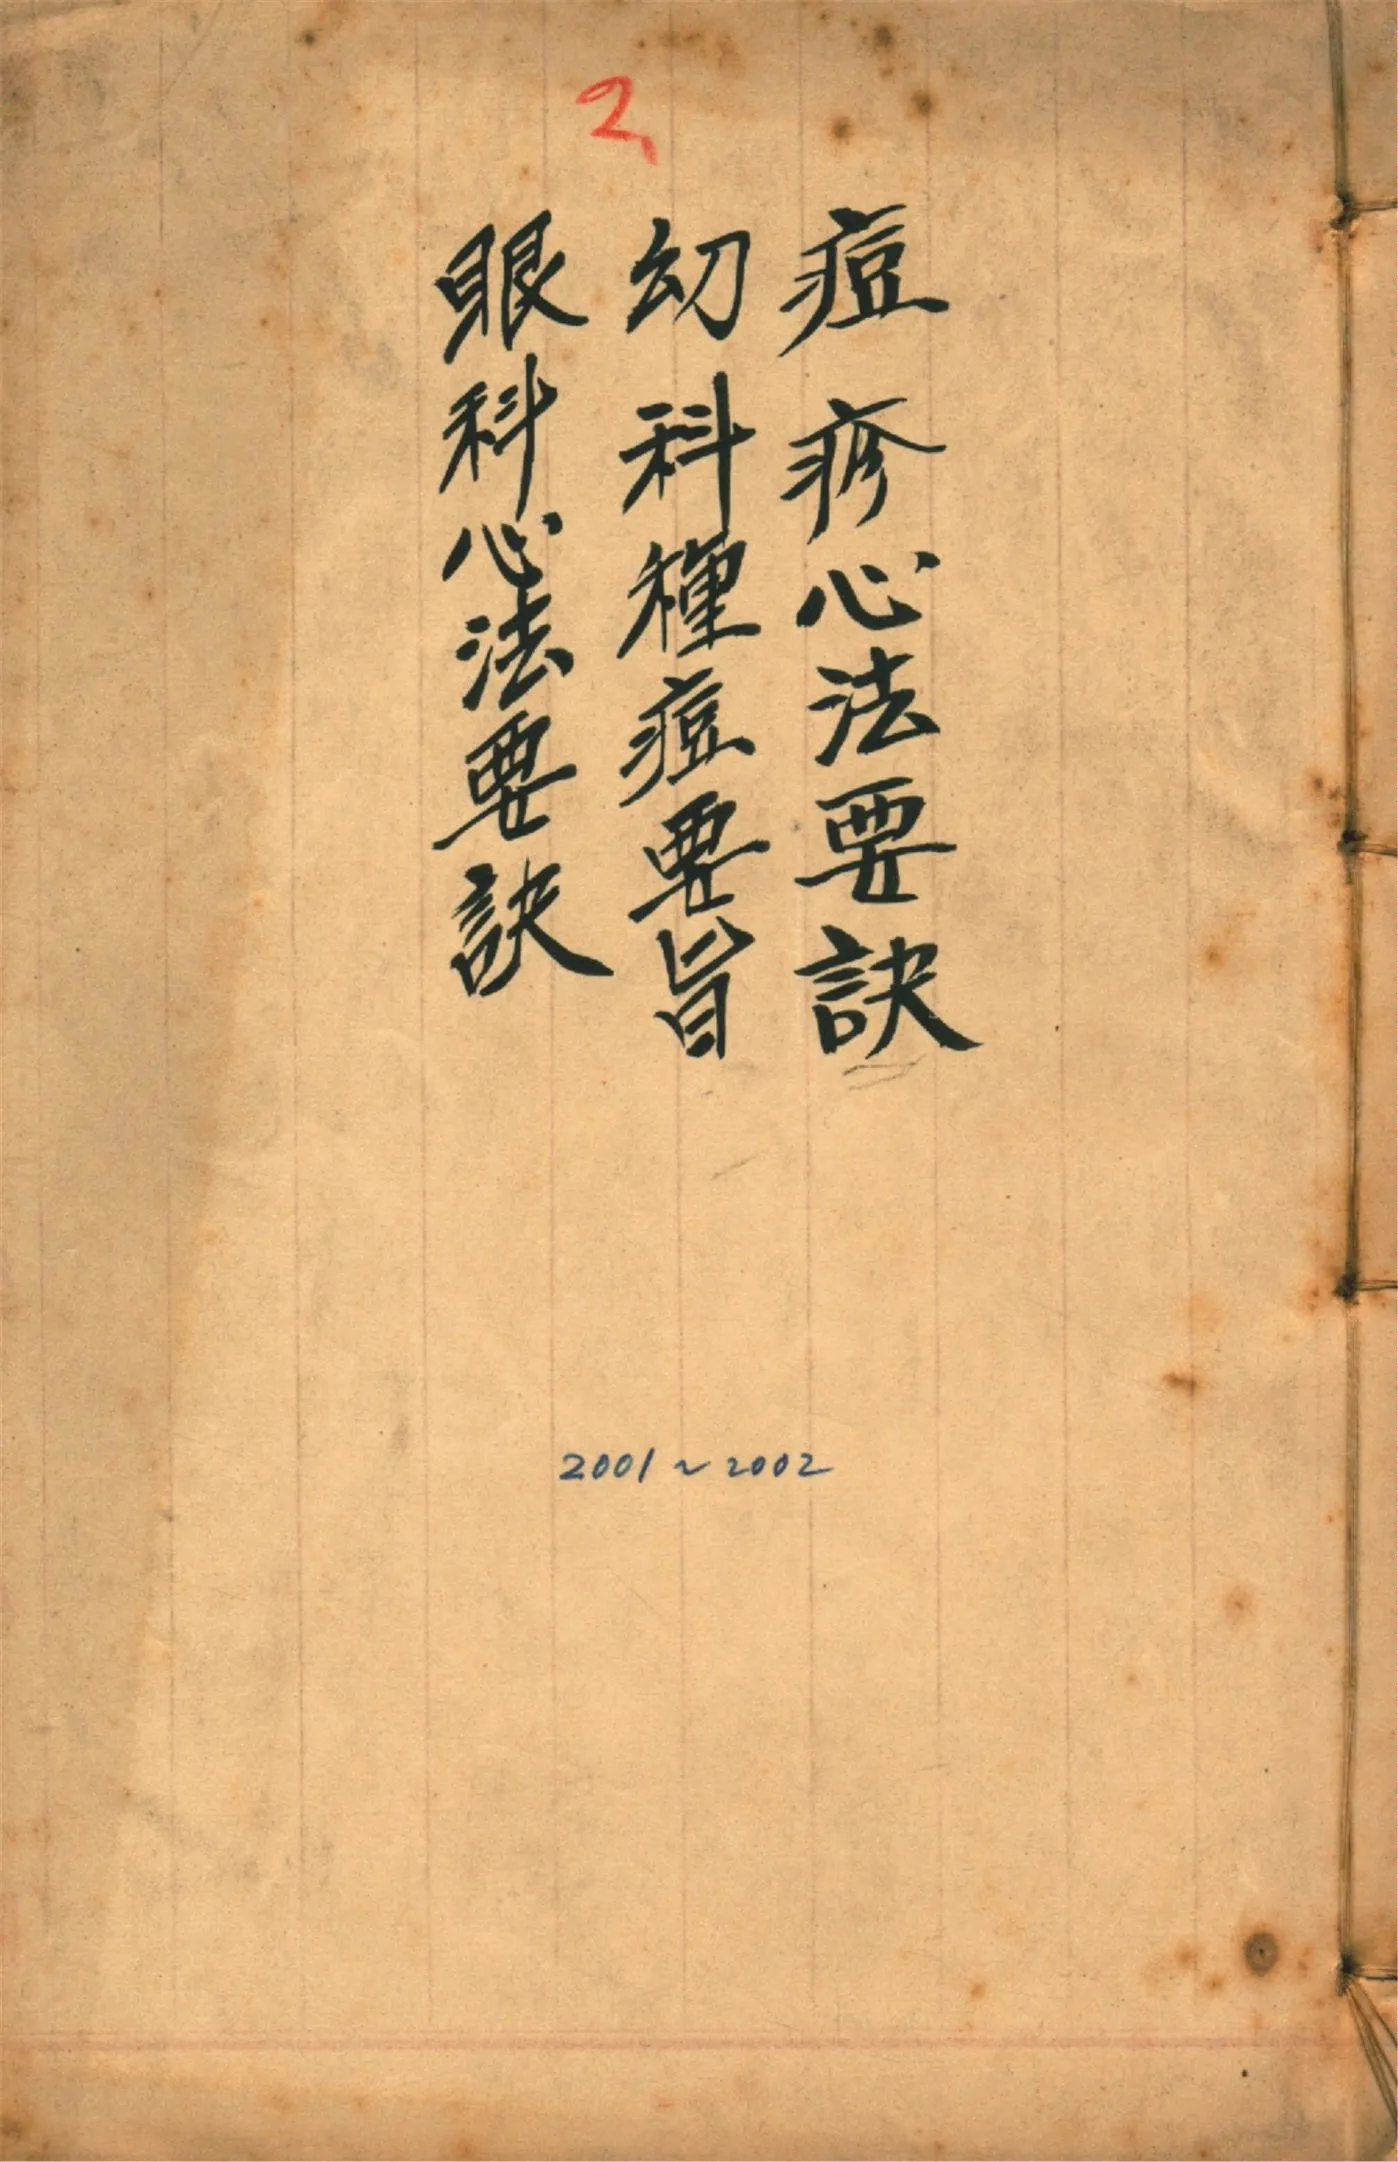 2
痘疹心法要訣
幼科種痘要旨
眼科心法要訣
2001~2002